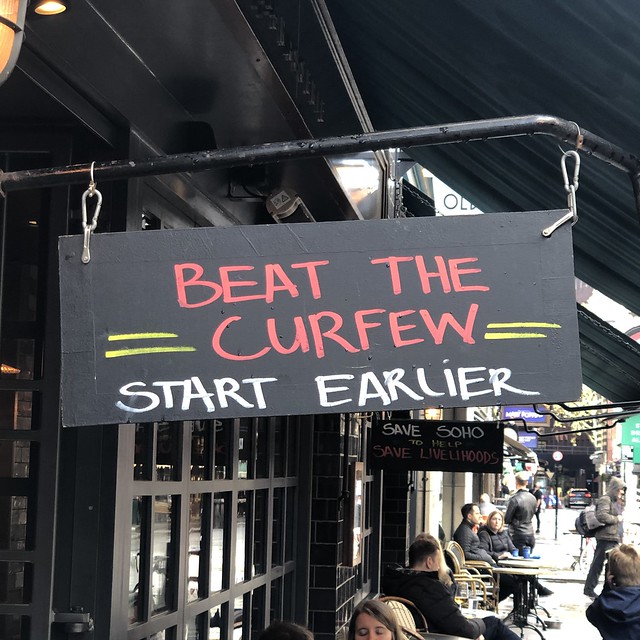 BEAT THE
CURFEW
START EARLIER
SAVE SOHO
TO HELP
SAVE LIVELIHOODS